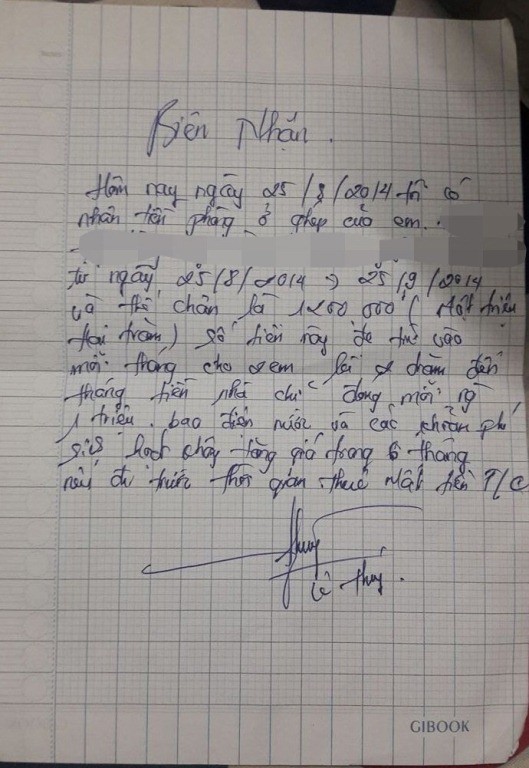 Biên Nhận.
Hôm nay ngày 25/8/2014 tôi có
nhận tiền phòng ở ghép của em.
từ ngày 25/8/2014 → 25/9/2014
và thế chân là 1200 000 (Một triệu
Hai trăm) số tiền này để trừ vào
mỗi tháng cho em là 2 trăm đến
tháng tiền nhà chỉ đóng mỗi ng
1 triệu. bao điện nước và các khoản phí
giữ không tăng giá trong 6 tháng
nếu đi trước thời gian thuê Mất tiền T/C
thuy
Lê thuy.
GIBOOK